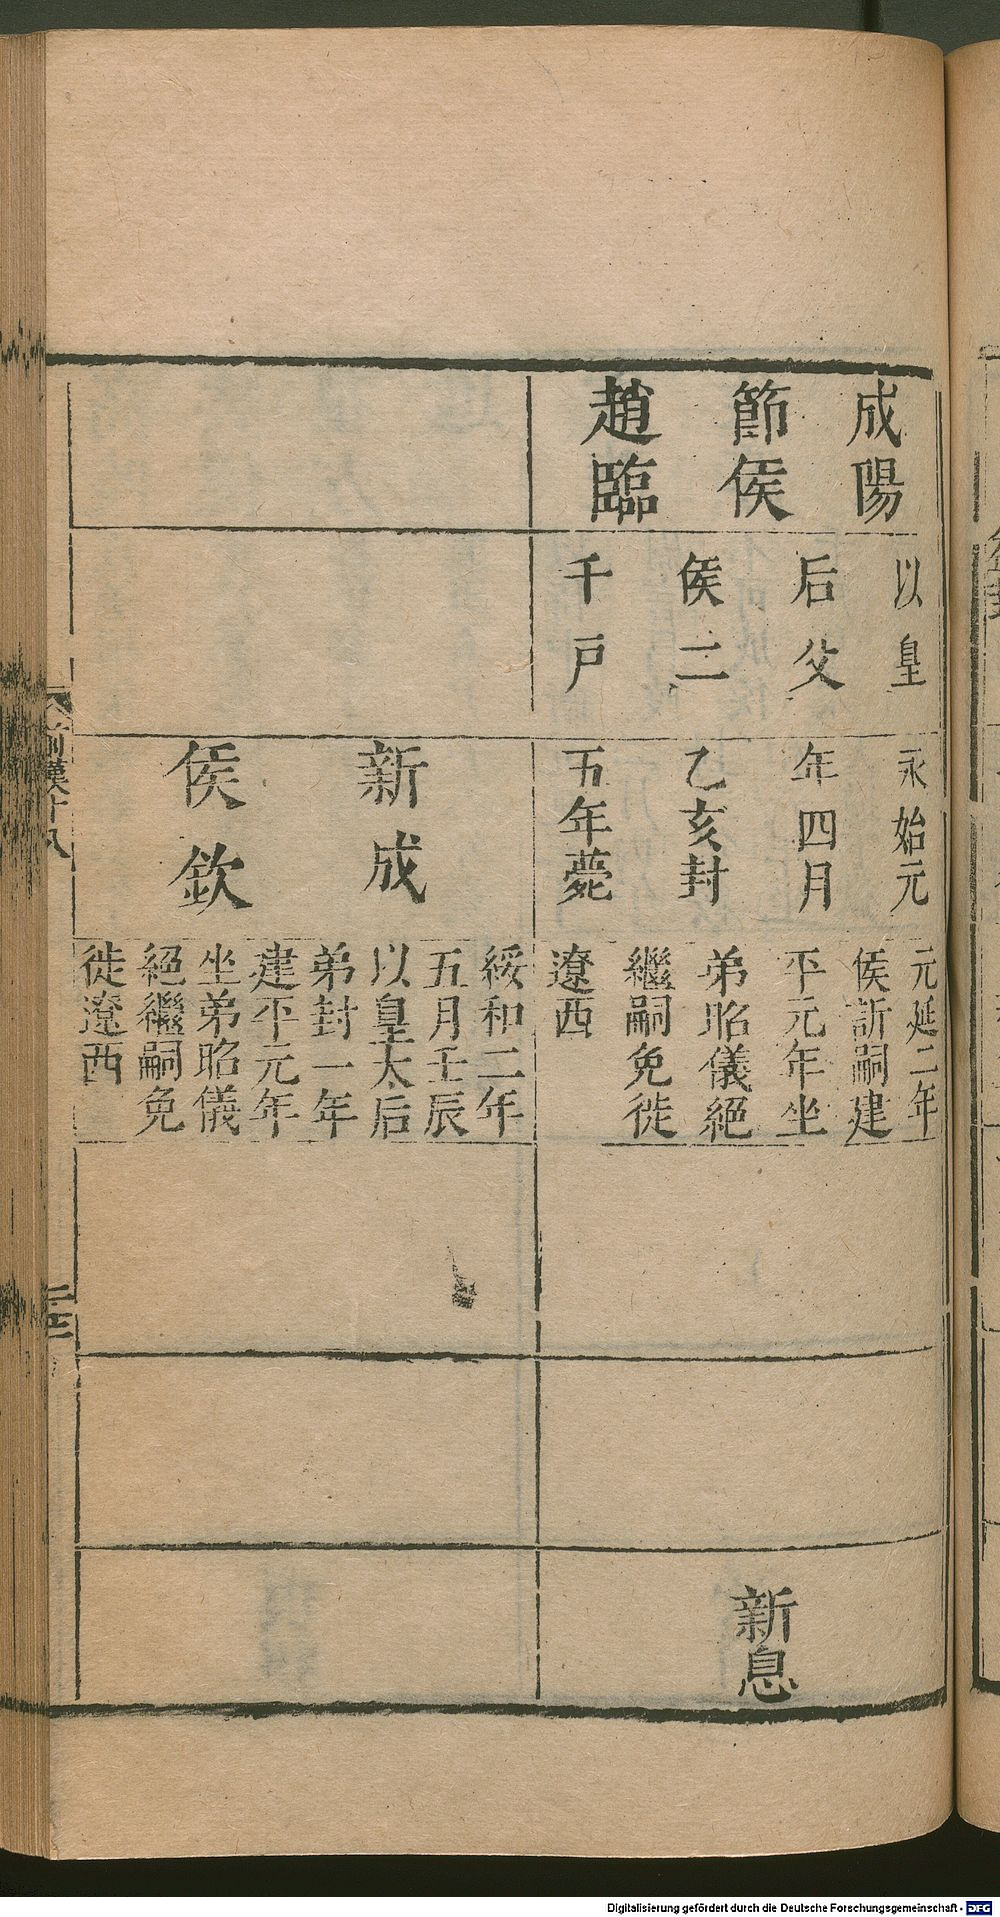 成陽
節侯
趙臨
以皇
后父
侯二
千戸
永始元
年四月
乙亥封
五年薨
元延二年
侯訢嗣建
平元年坐
弟昭儀絕
繼嗣免徙
遼西
新息
新成
侯欽
綏和二年
五月壬辰
以皇太后
弟封一年
建平元年
坐弟昭儀
絕繼嗣免
徙遼西
前漢十八
Digitalisierung gefördert durch die Deutsche Forschungsgemeinschaft - DFG